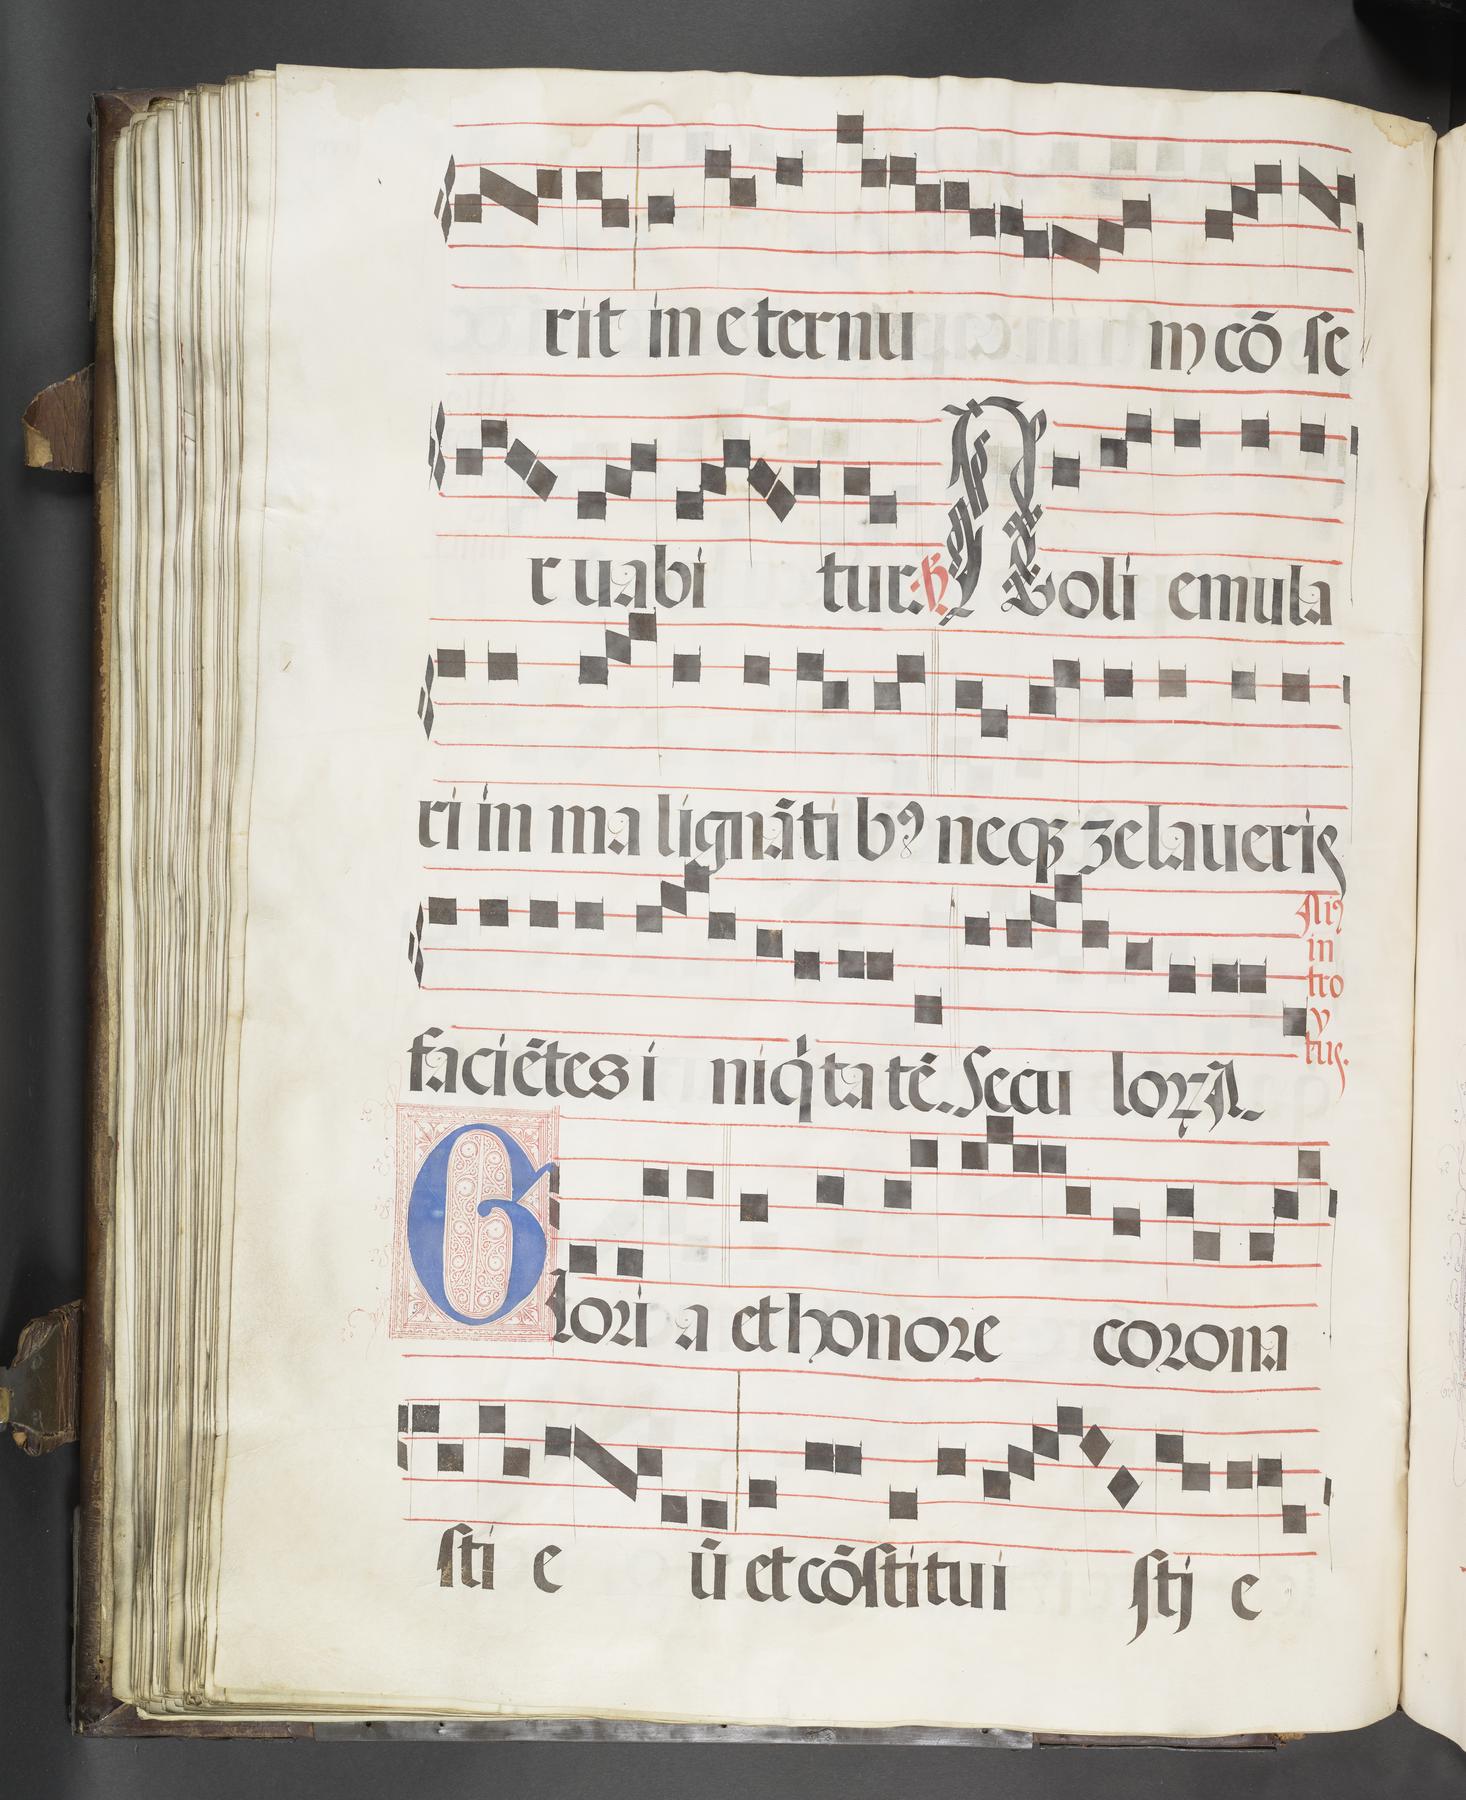 rit in eternu m cō se
ruabi tur. Noli emula
ri in malignāti bꝰ neqꝫ zelaueris
faciētes i niq̇tatē. Secu loꝝ A.
Aliꝰ
in
tro
y
tus.
Glori a et honore corona
sti e ū et cōstitui sti e